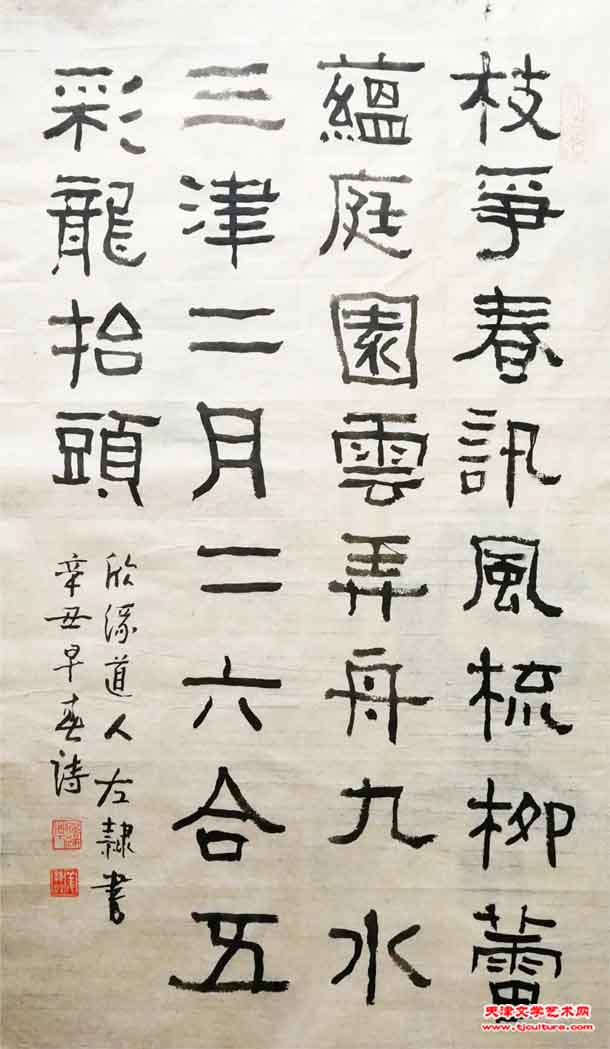 枝爭春訊風梳柳蕾
蘊庭園雲弄舟九水
三津二月二六合五
彩龍抬頭
欣緣道人左隸書
辛丑早春詩
天津文学艺术网
www.tjculture.com